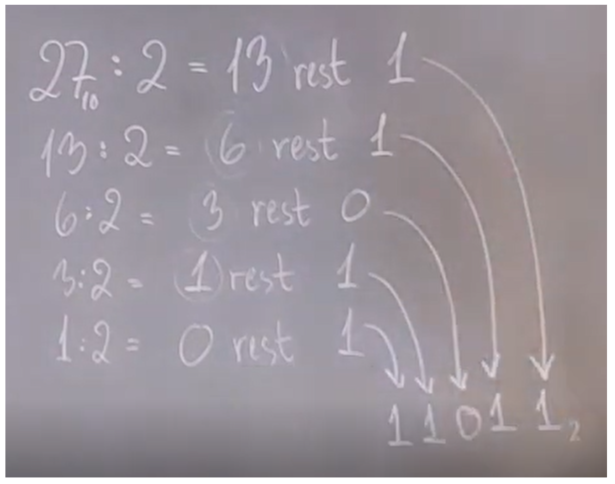 27₁₀ : 2 = 13 rest 1
13 : 2 = 6 rest 1
6 : 2 = 3 rest 0
3 : 2 = 1 rest 1
1 : 2 = 0 rest 1
11011₂